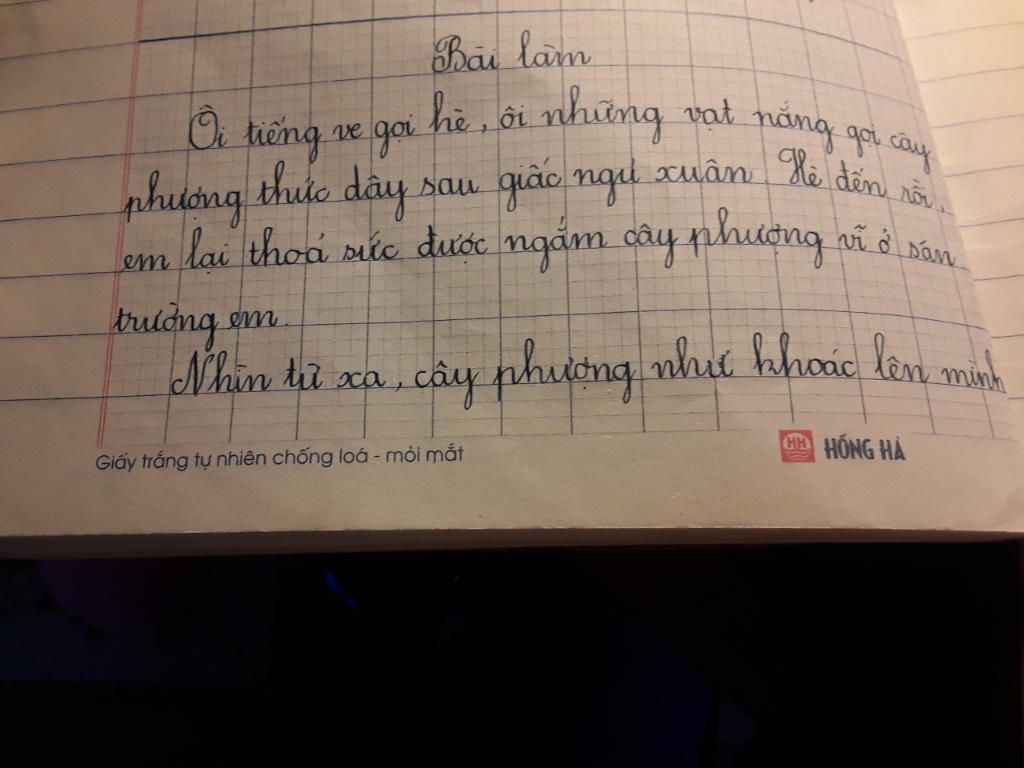 Bài làm
Ôi tiếng ve gọi hè, ôi những vạt nắng gọi cây
phượng thức dây sau giấc ngủ xuân. Hè đến rồi,
em lại thoả sức được ngắm cây phượng vĩ ở sân
trường em.
Nhìn từ xa, cây phượng như khoác lên mình
Giấy trắng tự nhiên chống loá - mỏi mắt
HH HỒNG HÀ